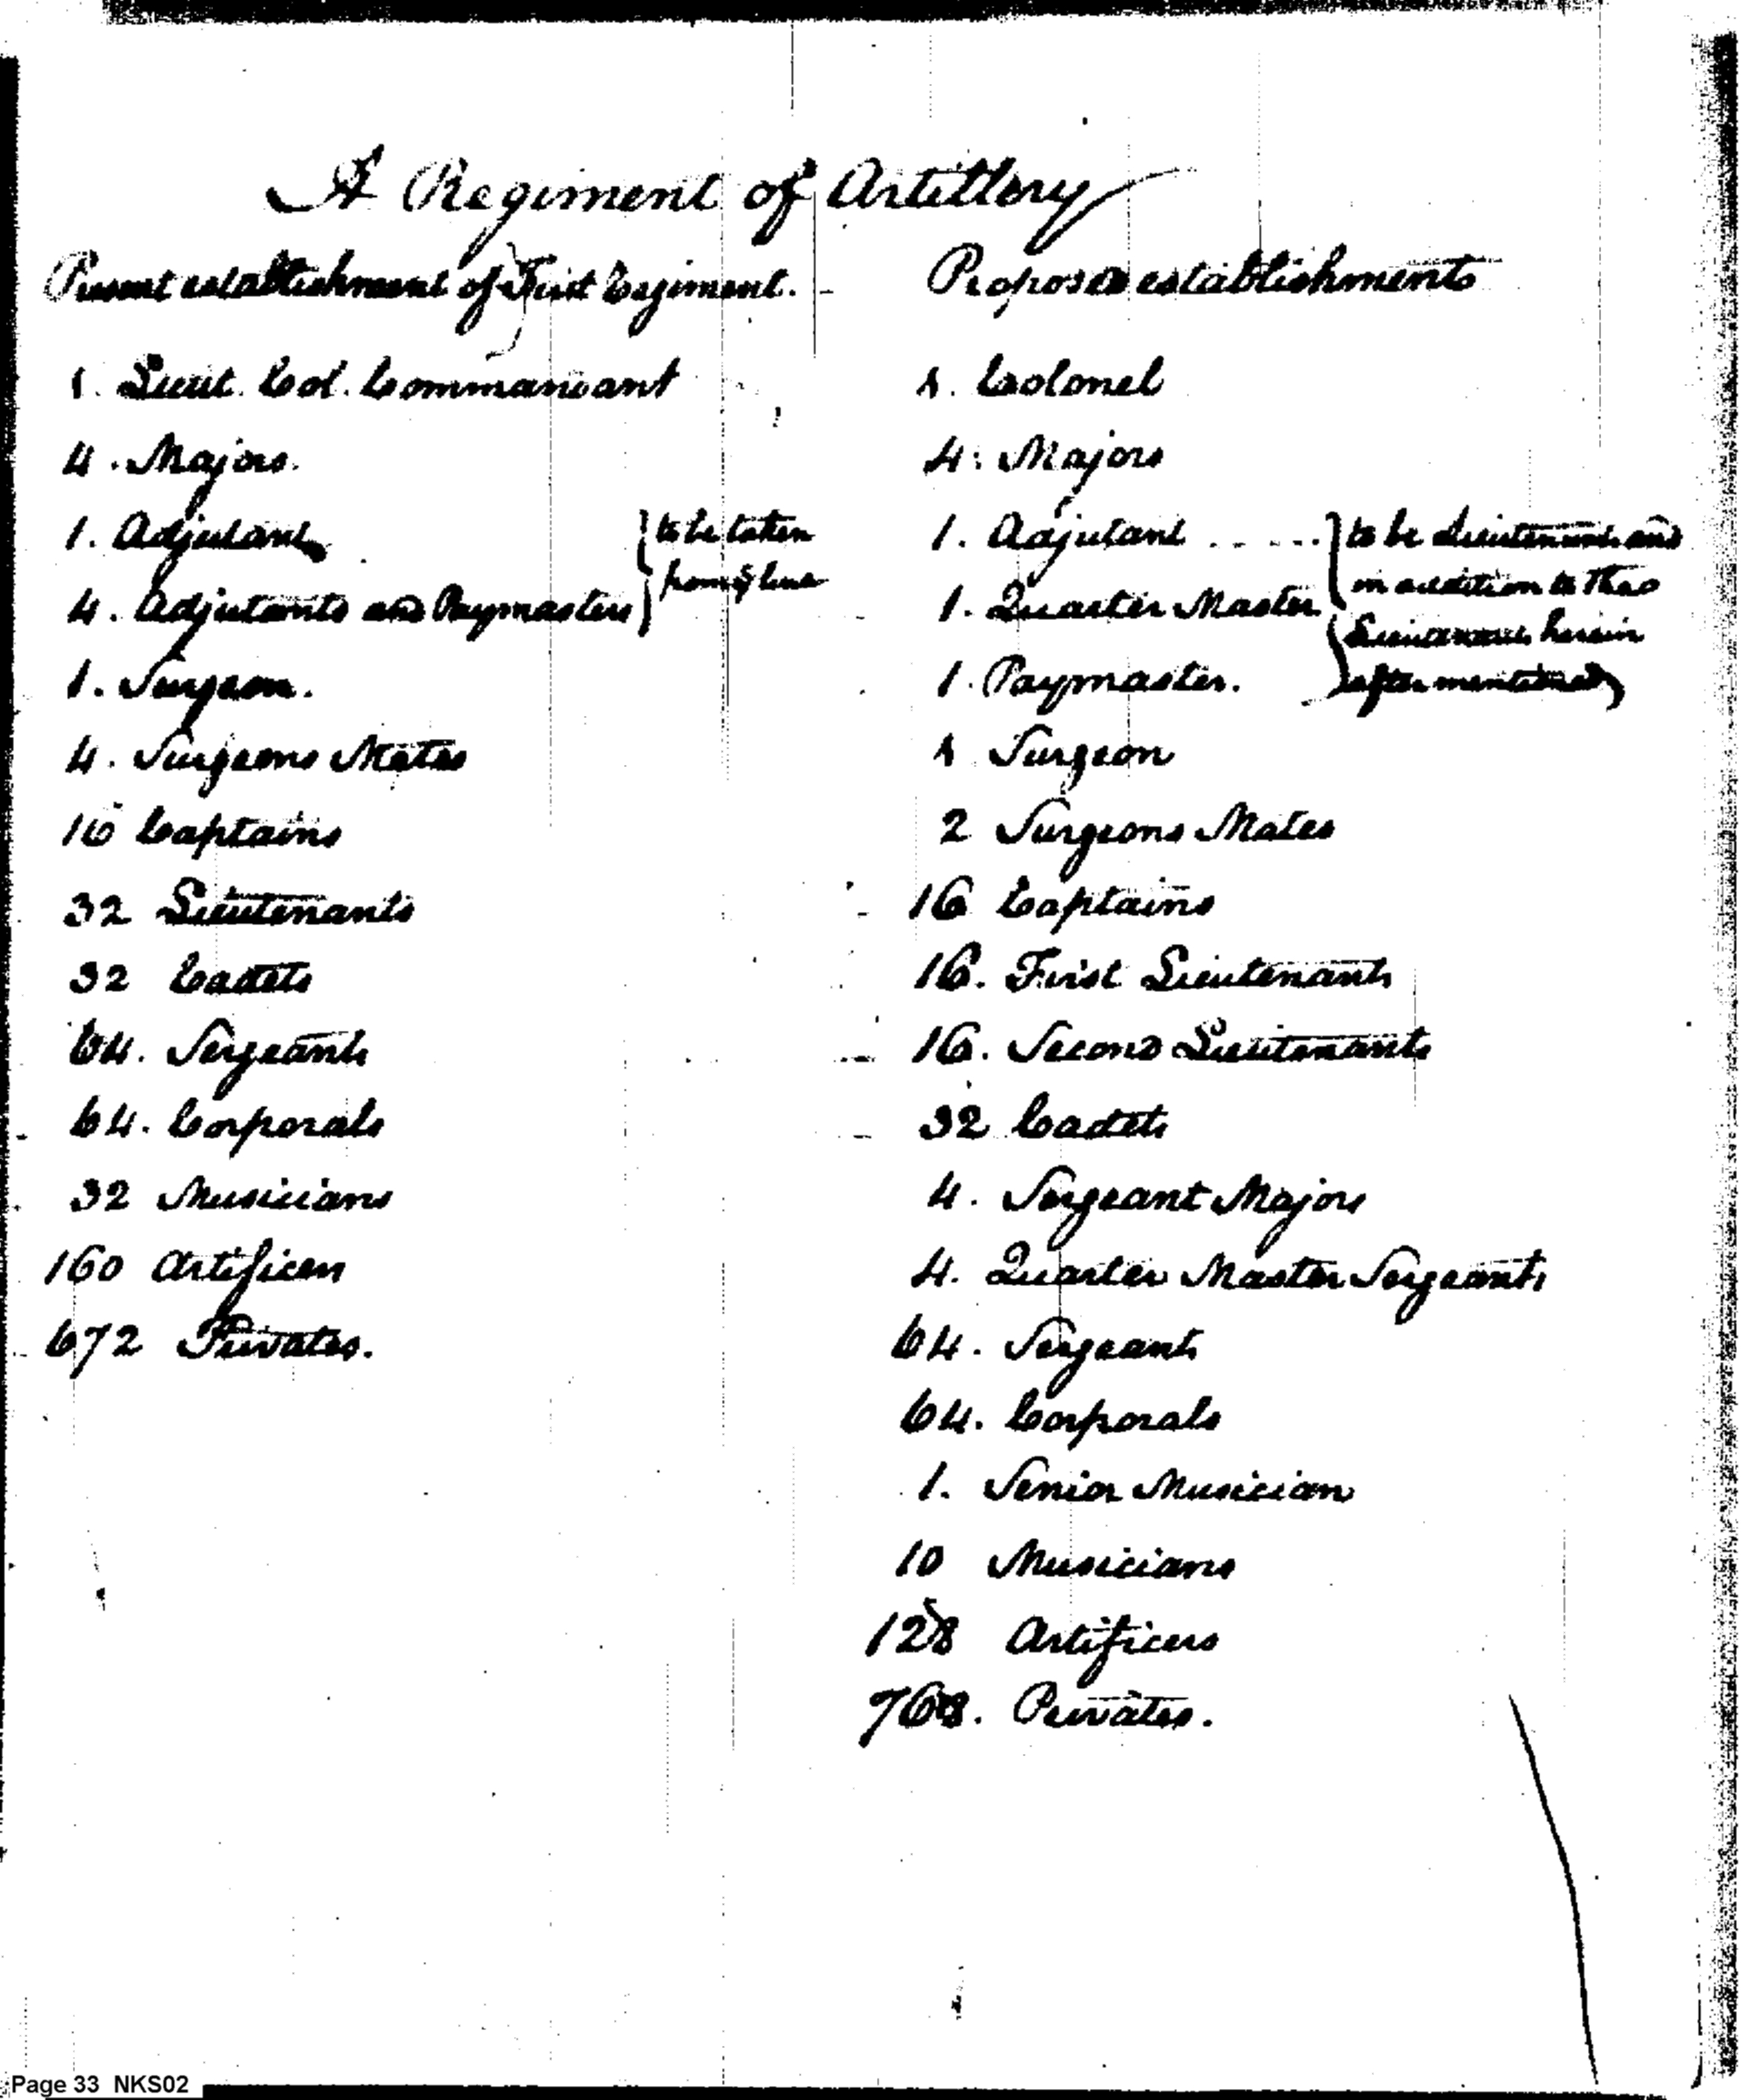 A Regiment of Artillery
Present establishment of First Regiment.
1. Lieut. Col. Commandant
4. Majors.
1. Adjutant
4. Adjutants and Paymasters
to be taken
from ye line
1. Surgeon.
4. Surgeons Mates
16 Captains
32 Lieutenants
32 Cadets
64. Sergeants
64. Corporals
32 Musicians
160 Artificers
672 Privates.
Proposed establishments
1. Colonel
4. Majors
1. Adjutant .....
1. Quarter Master
1. Paymaster.
to be Lieutenants and
in addition to the
Lieutenants herein
after mentioned
1 Surgeon
2 Surgeons Mates
16 Captains
16. First Lieutenants
16. Second Lieutenants
32 Cadets
4. Sergeant Majors
4. Quarter Master Sergeants
64. Sergeants
64. Corporals
1. Senior Musician
10 Musicians
128 Artificers
768. Privates.
Page 33 NKS02